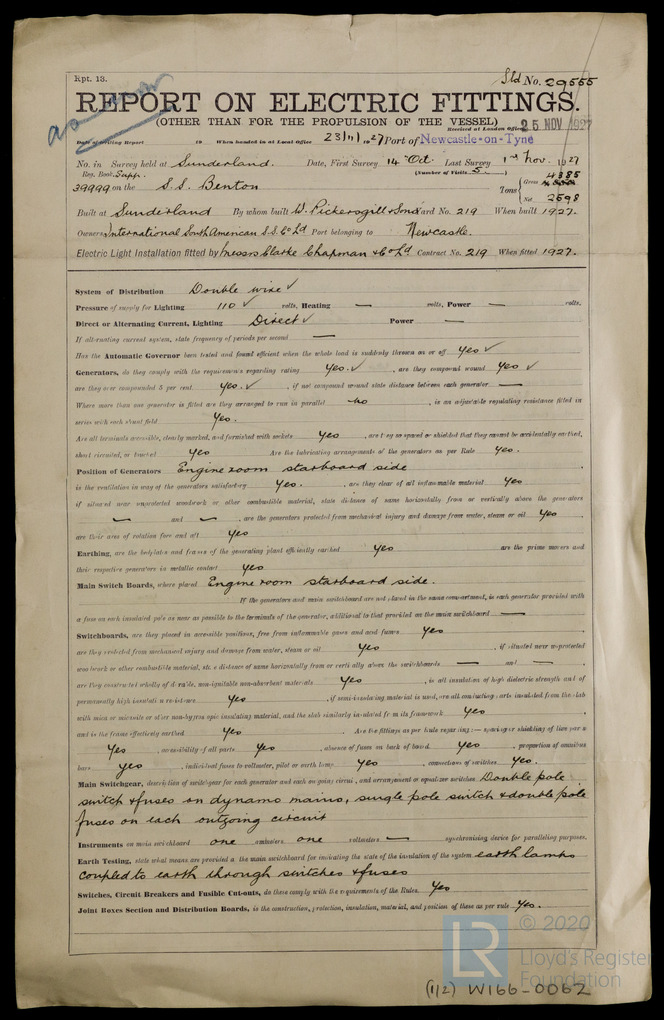 Rpt. 13.
Sld No. 29555
REPORT ON ELECTRIC FITTINGS.
(OTHER THAN FOR THE PROPULSION OF THE VESSEL)
Received at London Office 25 NOV 1927
Date of writing Report 19 When handed in at Local Office 23/11/1927 Port of Newcastle-on-Tyne
No. in Survey held at Sunderland. Date, First Survey 14 Oct. Last Survey 1st Nov. 1927
Reg. Book. Supp. (Number of Visits 5.)
39999 on the S.S. Benton Tons { Gross 4885
Net 2598
Built at Sunderland By whom built W. Pickersgill & Sons Yard No. 219 When built 1927.
Owners International South American S.S. Co Ld Port belonging to Newcastle.
Electric Light Installation fitted by Messrs Clarke Chapman & Co Ld Contract No. 219 When fitted 1927.
System of Distribution Double wire ✓
Pressure of supply for Lighting 110 ✓ volts, Heating — volts, Power — volts.
Direct or Alternating Current, Lighting Direct ✓ Power —
If alternating current system, state frequency of periods per second —
Has the Automatic Governor been tested and found efficient when the whole load is suddenly thrown on or off yes ✓
Generators, do they comply with the requirements regarding rating yes. ✓, are they compound wound yes ✓
are they over compounded 5 per cent. yes. ✓, if not compound wound state distance between each generator —
Where more than one generator is fitted are they arranged to run in parallel no, is an adjustable regulating resistance fitted in
series with each shunt field yes.
Are all terminals accessible, clearly marked, and furnished with sockets yes, are they so spaced or shielded that they cannot be accidentally earthed,
short circuited, or touched yes Are the lubricating arrangements of the generators as per Rule yes.
Position of Generators Engine room starboard side
is the ventilation in way of the generators satisfactory yes., are they clear of all inflammable material yes
if situated near unprotected woodwork or other combustible material, state distance of same horizontally from or vertically above the generators
— and —, are the generators protected from mechanical injury and damage from water, steam or oil yes
are their axes of rotation fore and aft yes
Earthing, are the bedplates and frames of the generating plant efficiently earthed yes are the prime movers and
their respective generators in metallic contact yes
Main Switch Boards, where placed Engine room starboard side.
If the generators and main switchboard are not placed in the same compartment, is each generator provided with
a fuse on each insulated pole as near as possible to the terminals of the generator, additional to that provided on the main switchboard —
Switchboards, are they placed in accessible positions, free from inflammable gases and acid fumes yes
are they protected from mechanical injury and damage from water, steam or oil yes, if situated near unprotected
woodwork or other combustible material, state distance of same horizontally from or vertically above the switchboards — and —
are they constructed wholly of durable, non-ignitable non-absorbent materials yes, is all insulation of high dielectric strength and of
permanently high insulation resistance yes, if semi-insulating material is used, are all conducting parts insulated from the slab
with mica or micanite or other non-hygroscopic insulating material, and the slab similarly insulated from its framework yes.
and is the frame effectively earthed yes Are the fittings as per Rule regarding:— spacing or shielding of live parts
yes, accessibility of all parts yes, absence of fuses on back of board yes, proportion of omnibus
bars yes, individual fuses to voltmeter, pilot or earth lamp yes, connections of switches yes.
Main Switchgear, description of switchgear for each generator and each outgoing circuit, and arrangement of equaliser switches Double pole
switch & fuses on dynamo mains, single pole switch & double pole
fuses on each outgoing circuit
Instruments on main switchboard one ammeters one voltmeters — synchronising device for paralleling purposes.
Earth Testing, state what means are provided at the main switchboard for indicating the state of the insulation of the system earth lamps
coupled to earth through switches & fuses
Switches, Circuit Breakers and Fusible Cut-outs, do these comply with the requirements of the Rules yes
Joint Boxes Section and Distribution Boards, is the construction, protection, insulation, material, and position of these as per rule yes.
© 2020
LR Lloyd's Register
Foundation
(1/2) W166-0062